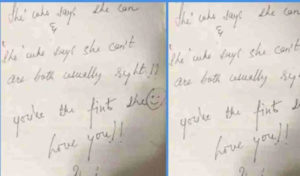 'She' who says she can
&
'She' who says she can't
are both usually right!!
you're the first she
Love you!!
'She' who says she can
&
'She' who says she can't
are both usually right
you're the first she
Love you!!